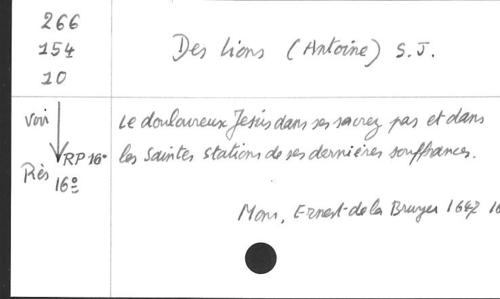 266
154
10
Des Lions (Antoine) S.J.
voir
RP 16°
Rés 16°
Le douloureux Jésus dans ses sacrez pas et dans
les saintes stations de ses dernières souffrances.
Mons, Ernest de la Bruyer 1647